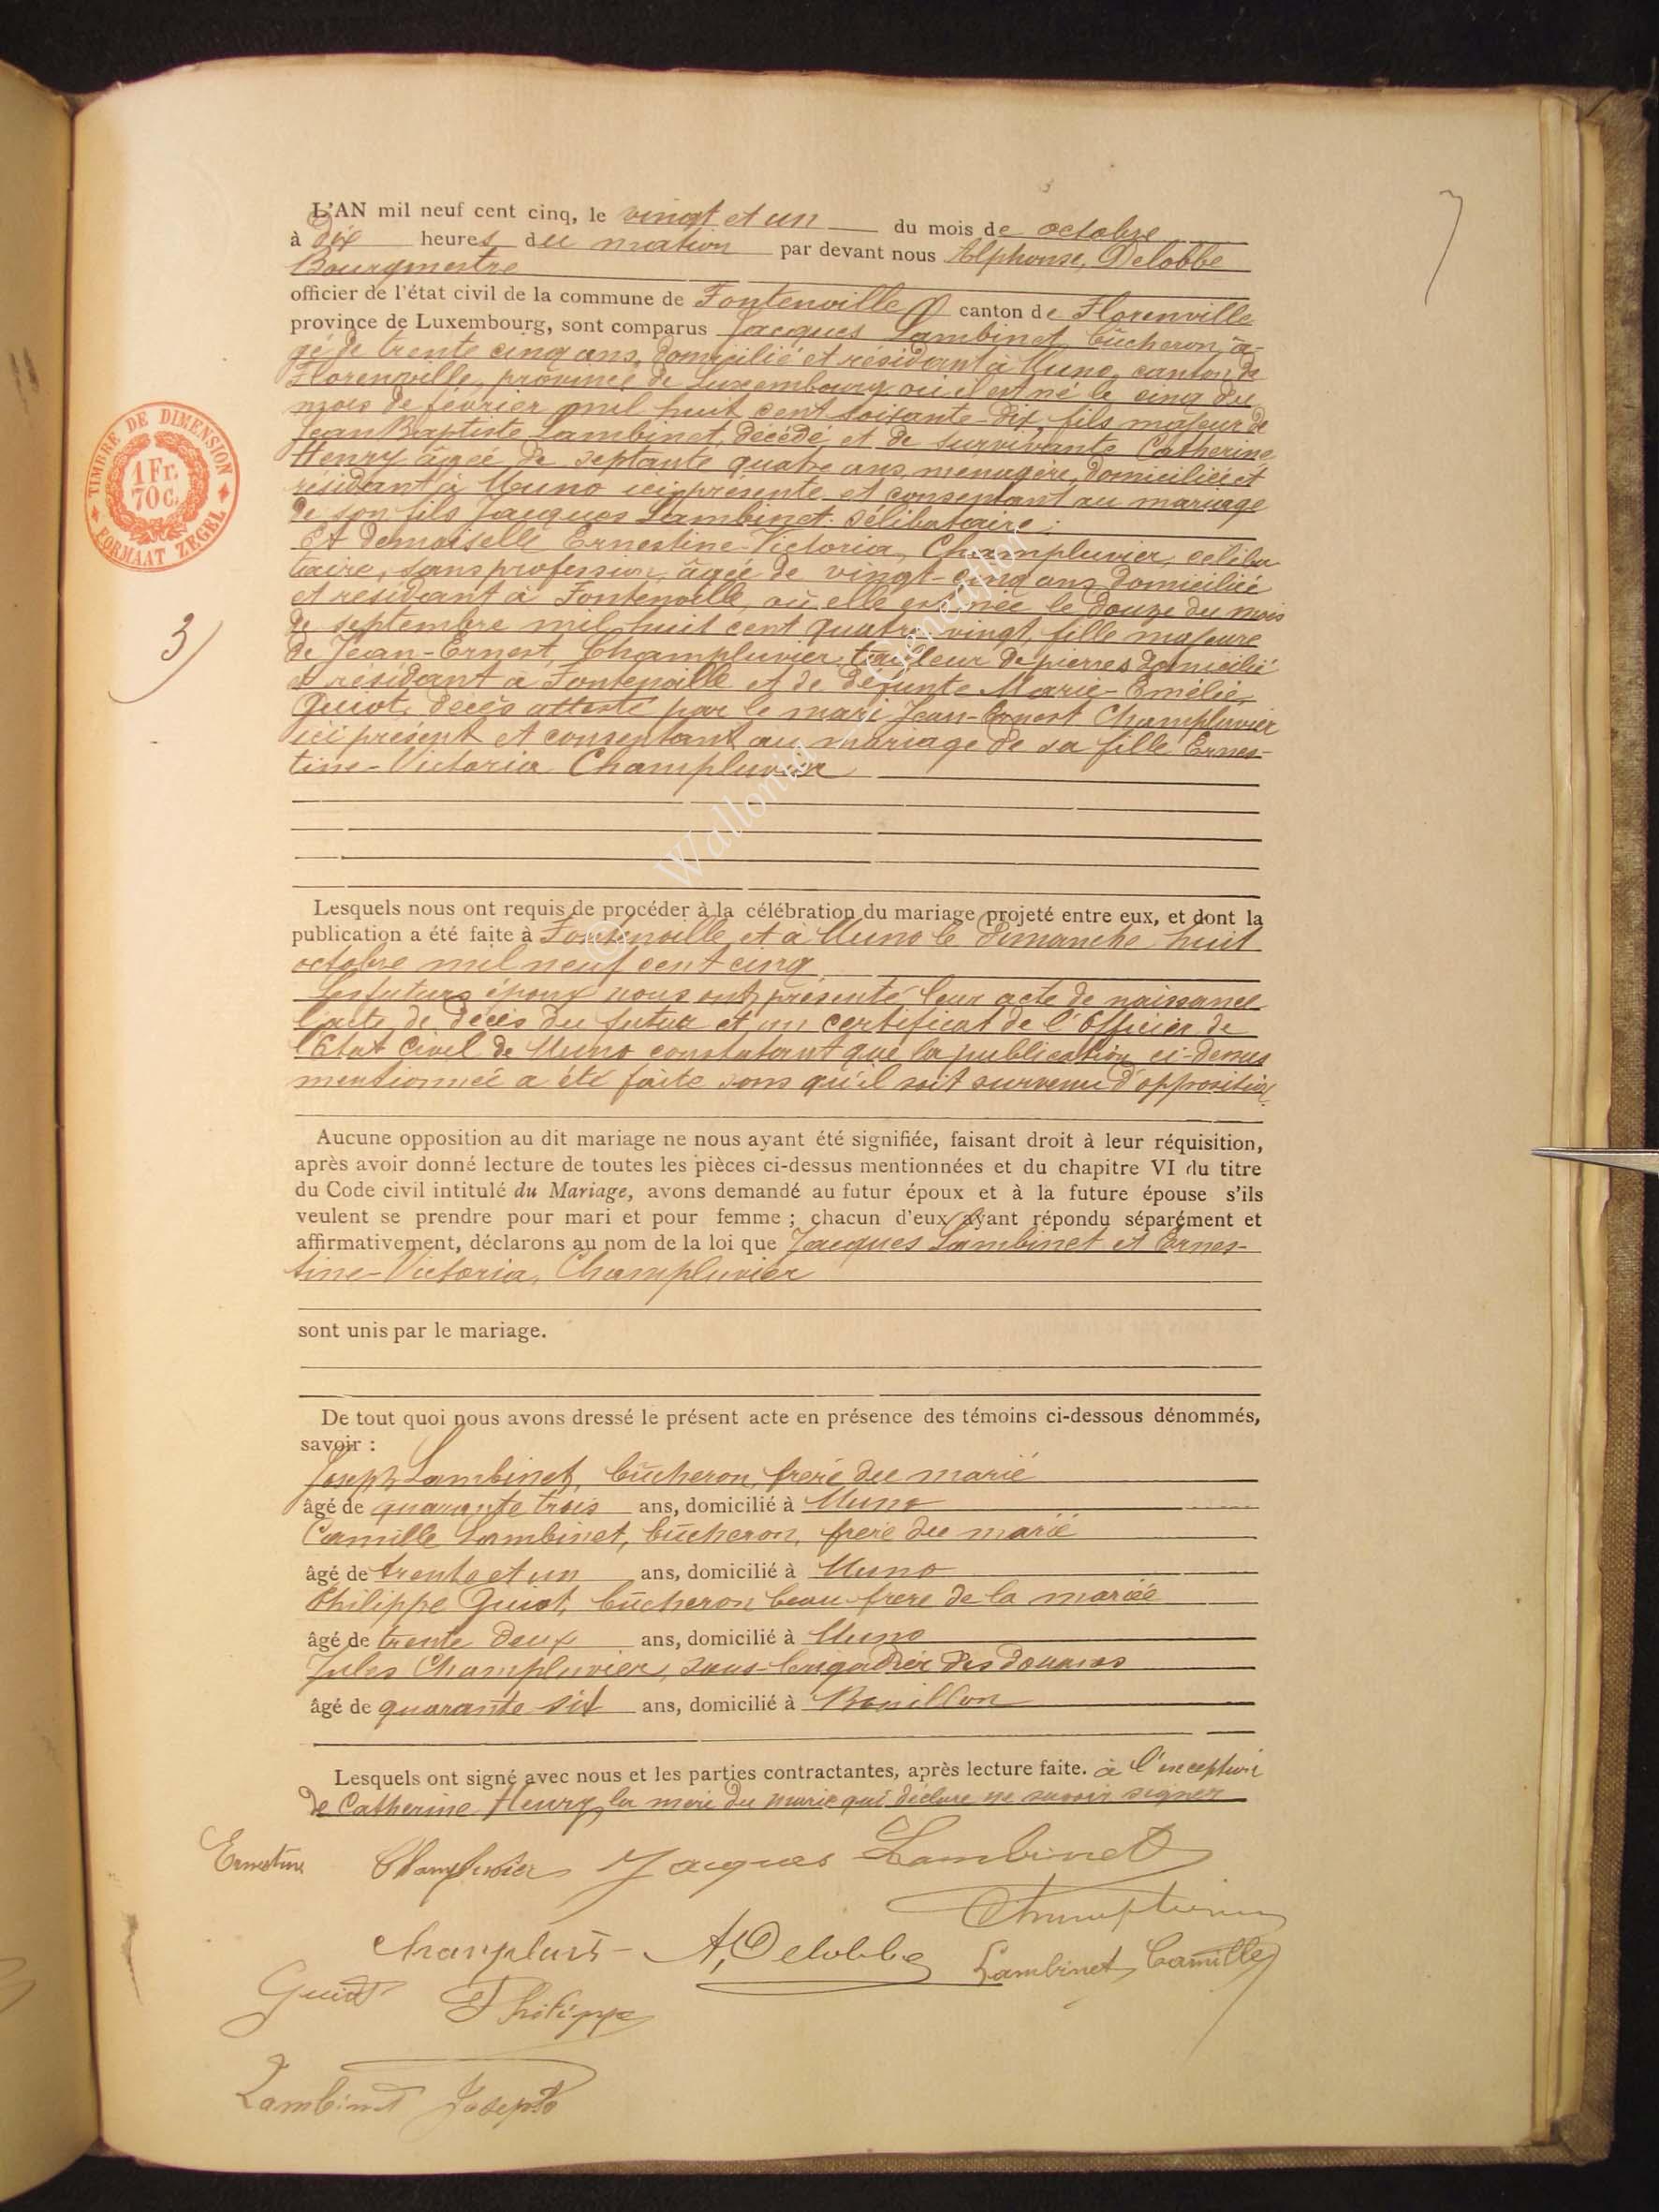 7
L'AN mil neuf cent cinq, le vingt et un du mois de octobre
à Dix heures du matin par devant nous Alphonse, Delobbe
Bourgmestre
officier de l'état civil de la commune de Fontenoille canton de Florenville
province de Luxembourg, sont comparus Jacques Lambinet, bûcheron, â-
gé de trente cinq ans, domicilié et résidant à Muno, canton de
Florenville, province de Luxembourg où il est né le cinq du
mois de février mil huit cent soixante-dix, fils majeur de
Jean Baptiste Lambinet, décédé et de survivante Catherine
Henry âgée de septante quatre ans, ménagère, domiciliée et
résidant à Muno ici présente et consentant au mariage
de son fils Jacques Lambinet. célibataire;
Et Demoiselle Ernestine-Victoria, Champluvier, céliba
taire, sans profession, âgée de vingt-cinq ans domiciliée
et résidant à Fontenoille, où elle est née le douze du mois
de septembre mil huit cent quatre vingt, fille majeure
de Jean-Ernest, Champluvier, tailleur de pierres domicilié
et résidant à Fontenoille et de défunte Marie-Emélie,
Quiot, décès attesté par le mari Jean-Ernest Champluvier
ici présent et consentant au mariage de sa fille Ernes-
tine-Victoria Champluvier
TIMBRE DE DIMENSION
1 Fr.
70 c.
FORMAAT ZEGEL
3)
© Wallonia - Geneaflor
Lesquels nous ont requis de procéder à la célébration du mariage projeté entre eux, et dont la
publication a été faite à Fontenoille et à Muno le dimanche huit
octobre mil neuf cent cinq
Les futurs époux nous ont présenté leur acte de naissance
l'acte de décès du futur et un certificat de l'Officier de
l'Etat Civil de Muno constatant que la publication ci-dessus
mentionnée a été faite sans qu'il soit survenu d'opposition
Aucune opposition au dit mariage ne nous ayant été signifiée, faisant droit à leur réquisition,
après avoir donné lecture de toutes les pièces ci-dessus mentionnées et du chapitre VI du titre
du Code civil intitulé du Mariage, avons demandé au futur époux et à la future épouse s'ils
veulent se prendre pour mari et pour femme ; chacun d'eux ayant répondu séparément et
affirmativement, déclarons au nom de la loi que Jacques Lambinet et Ernes-
tine-Victoria, Champluvier
sont unis par le mariage.
De tout quoi nous avons dressé le présent acte en présence des témoins ci-dessous dénommés,
savoir :
Joseph Lambinet, bûcheron, frère du marié
âgé de quarante trois ans, domicilié à Muno
Camille Lambinet, bûcheron, frère du marié
âgé de trente et un ans, domicilié à Muno
Philippe Quiot, bûcheron beau-frère de la mariée
âgé de trente deux ans, domicilié à Muno
Jules Champluvier, sous-brigadier des douanes
âgé de quarante six ans, domicilié à Bouillon
Lesquels ont signé avec nous et les parties contractantes, après lecture faite. à l'exception
de Catherine Henry, la mère du marié qui déclare ne savoir signer
Ernestine Champluvier Jacques Lambinet
A, Delobbe Lambinet, Camille
Quiot Philippe
Lambinet Joseph